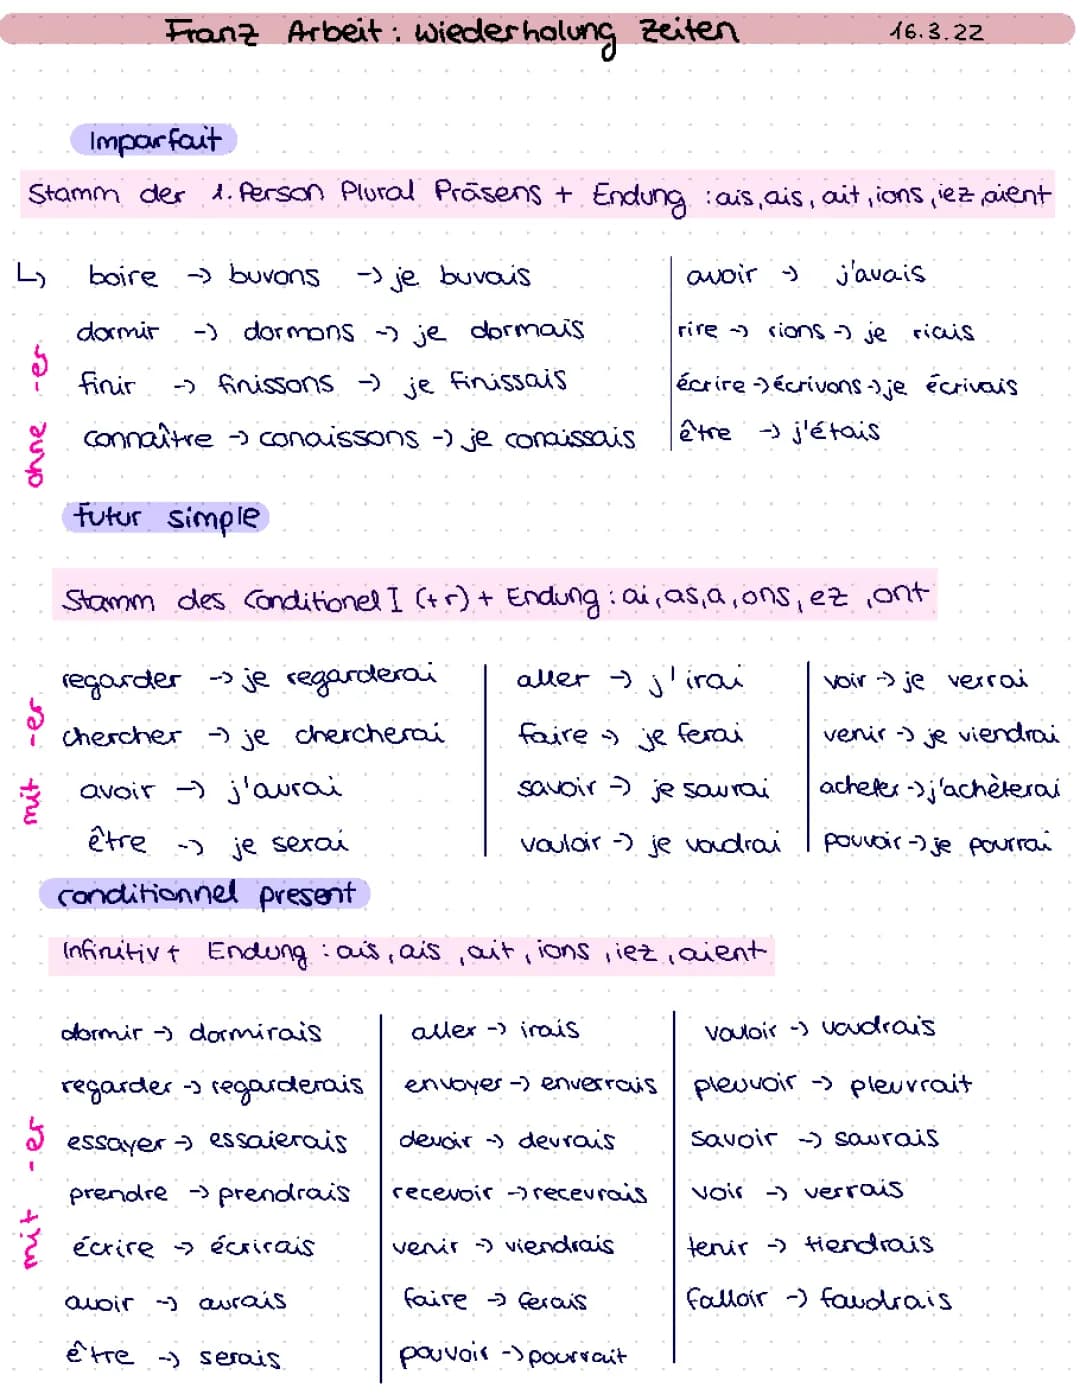 Franz Arbeit : Wiederholung Zeiten 16.3.22
Imparfait
Stamm der 1. Person Plural Präsens + Endung : ais, ais, ait, ions, iez, aient
↳ boire → buvons → je buvais
dormir → dormons → je dormais
finir → finissons → je finissais
connaître → conaissons → je conaissais
ohne -er
avoir → j'avais
rire → rions → je riais
écrire → écrivons → je écrivais
être → j'étais
futur simple
Stamm des Conditionel I (+r) + Endung : ai, as, a, ons, ez, ont
mit -er
regarder → je regarderai
chercher → je chercherai
avoir → j'aurai
être → je serai
aller → j'irai
faire → je ferai
savoir → je saurai
vouloir → je voudrai
voir → je verrai
venir → je viendrai
acheter → j'achèterai
pouvoir → je pourrai
conditionnel present
Infinitiv + Endung : ais, ais, ait, ions, iez, aient
mit -er
dormir → dormirais
regarder → regarderais
essayer → essaierais
prendre → prendrais
écrire → écrirais
avoir → aurais
être → serais
aller → irais
envoyer → enverrais
devoir → devrais
recevoir → recevrais
venir → viendrais
faire → ferais
pouvoir → pourrait
vouloir → voudrais
pleuvoir → pleuvrait
savoir → saurais
voir → verrais
tenir → tiendrais
falloir → faudrais